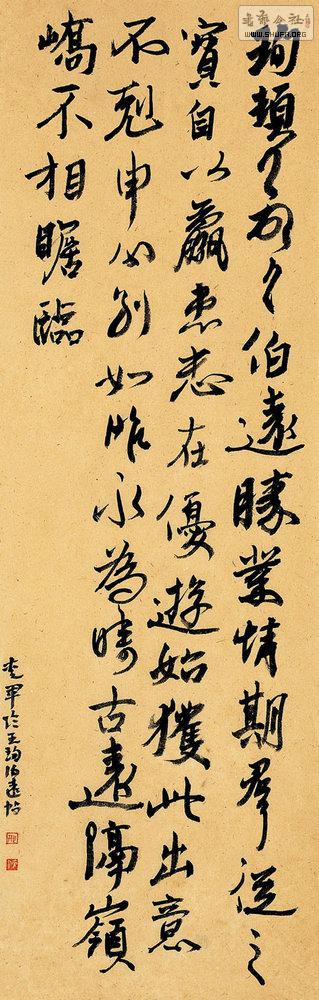 珣頓首頓首伯遠勝業情期羣從之
寶自以羸患志在優遊始獲此出意
不剋申分別如昨永為疇古遠隔嶺
嶠不相瞻臨
軍臨王珣伯遠帖
公社
WWW.SHUFA.ORG